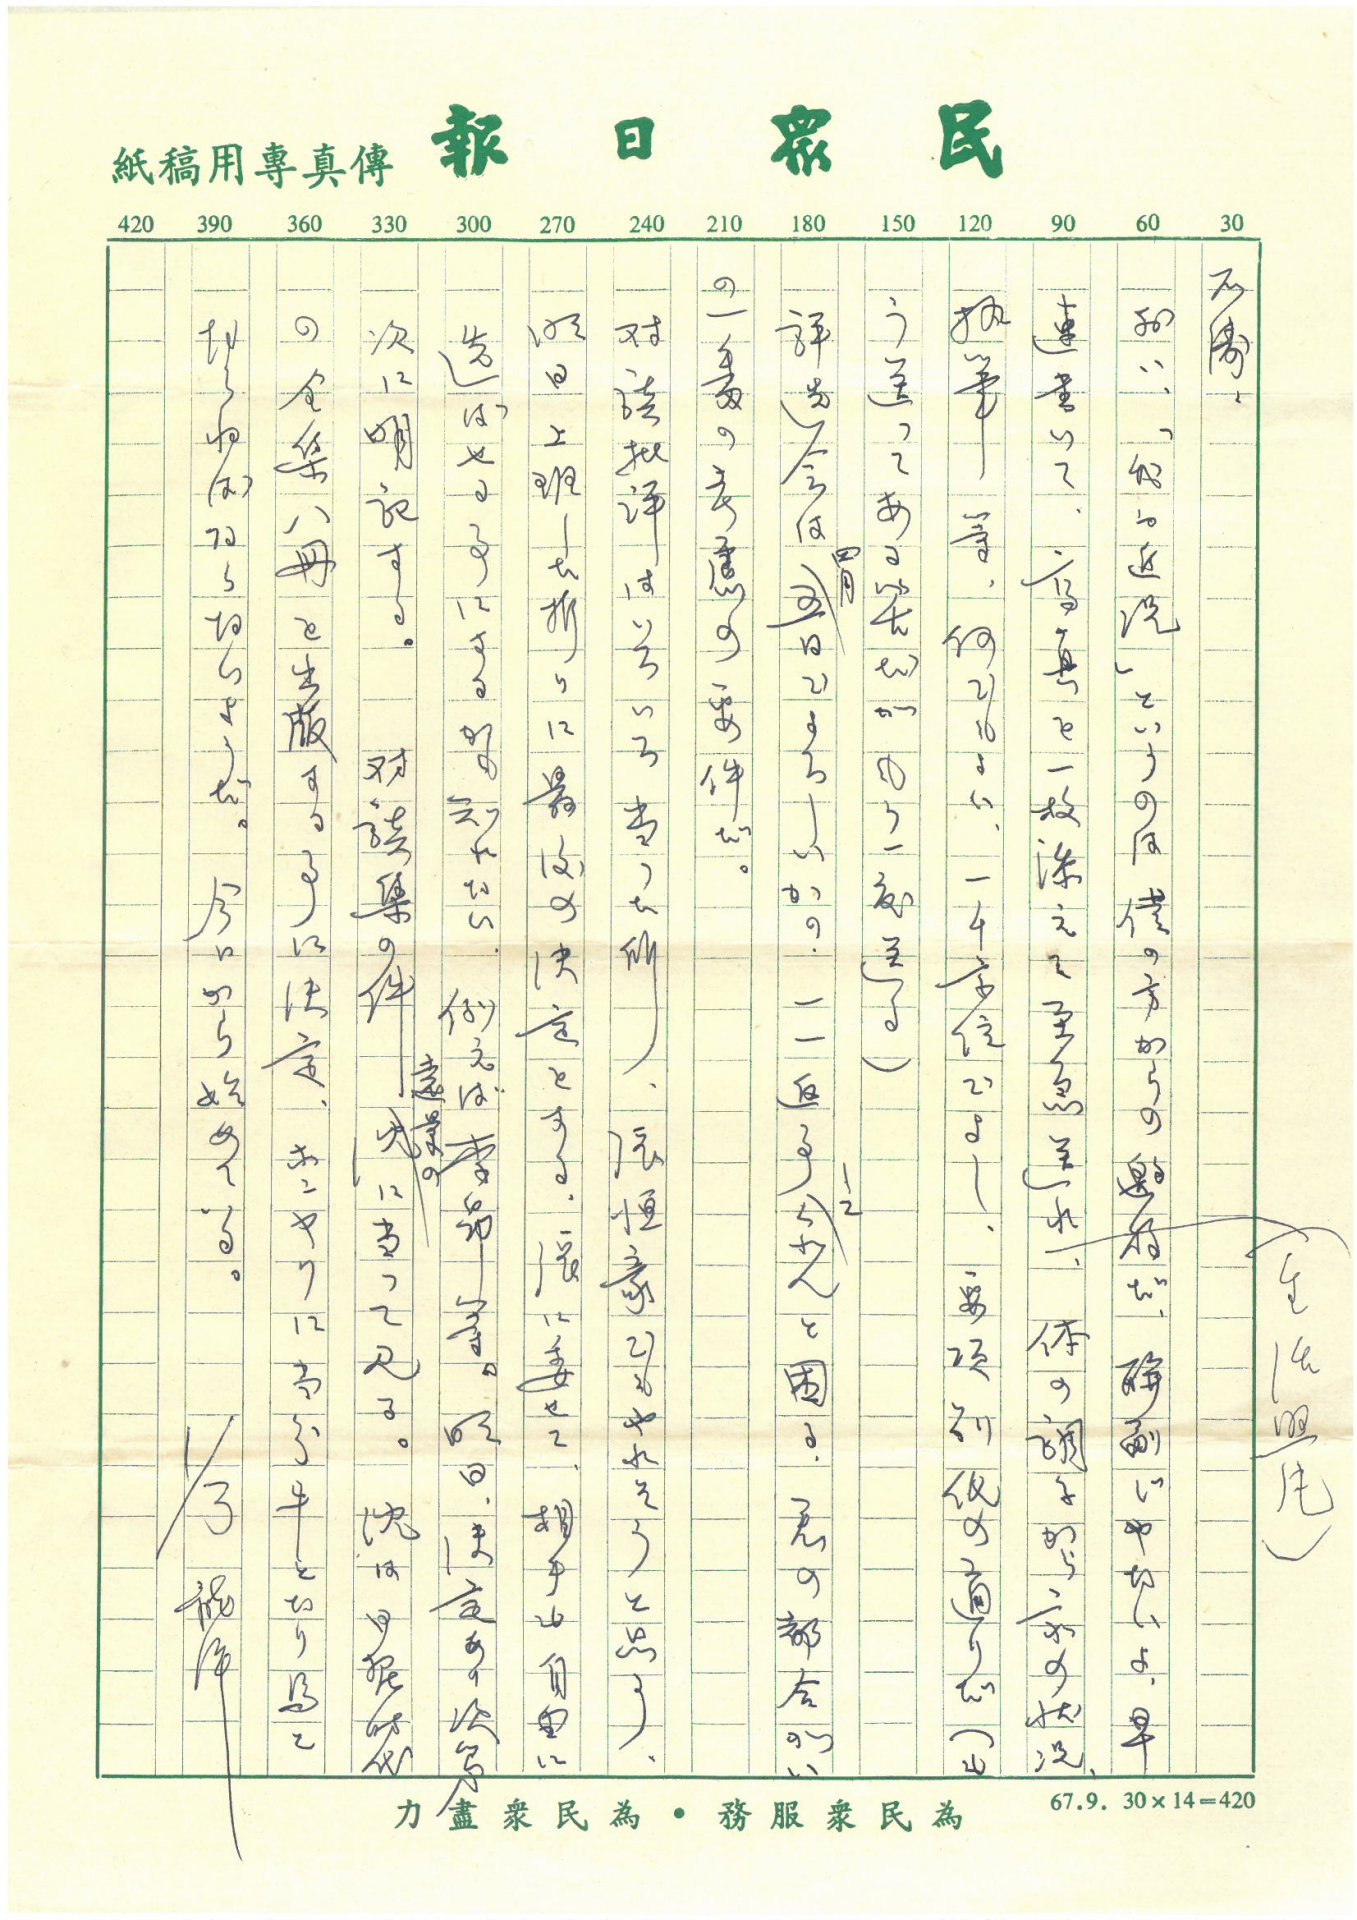 民眾日報
傳真專用稿紙
30 60 90 120 150 180 210 240 270 300 330 360 390 420
おい、「私の近況」というのは僕の方からの
だ、酔興じゃないよ、早
速書いて、写真を一枚添えて至急送れ、体の調子から家の状況、
(生活照片)
執筆等、何でもよい、一千字位でよし、要項別紙の通りだ(も
う送ってある筈だがもう一度送る)
評
会は
日でよろしいかの
と困る、君の都合がい
四月
の一番の考慮の要件だ。
対談批評はいろいろ当った所、張恒豪でもやれそうと思う、
明日上班した折りに最後の決定とする、張に委せて、相手も自由に
選ばせる事にするかも知れない、例えば李昂等。明日、決定あり次第
次に明記する。 対談集の件
に当って見る。沈は日據時代
の全集八冊を出版する事に決定、
やりに当分牛となり馬と
ならねばならないようだ。今から始めている。
1/3
為民眾服務・為民眾盡力
67.9. 30×14=420